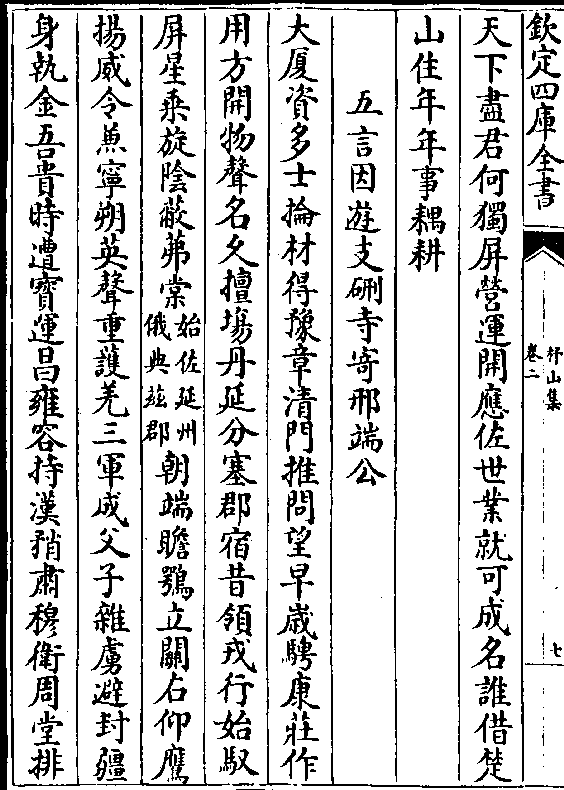 欽定四庫全書
杼山集
卷二
七
天下盡君何獨屏營運開應佐世業就可成名誰借楚
山住年年事耦耕
五言因遊支硎寺寄邢端公
大厦資多士掄材得豫章清門推問望早歳騁康莊作
用方開物聲名久擅塲丹延分塞郡宿昔領戎行始馭
屏星乘旋陰蔽茀棠始佐延州俄典兹郡朝端瞻鶚立關右仰鷹
揚威令兼寧朔英聲重護羌三軍成父子雜虜避封疆
身執金吾貴時遭寳運昌雍容持漢矟肅穆衛周堂排